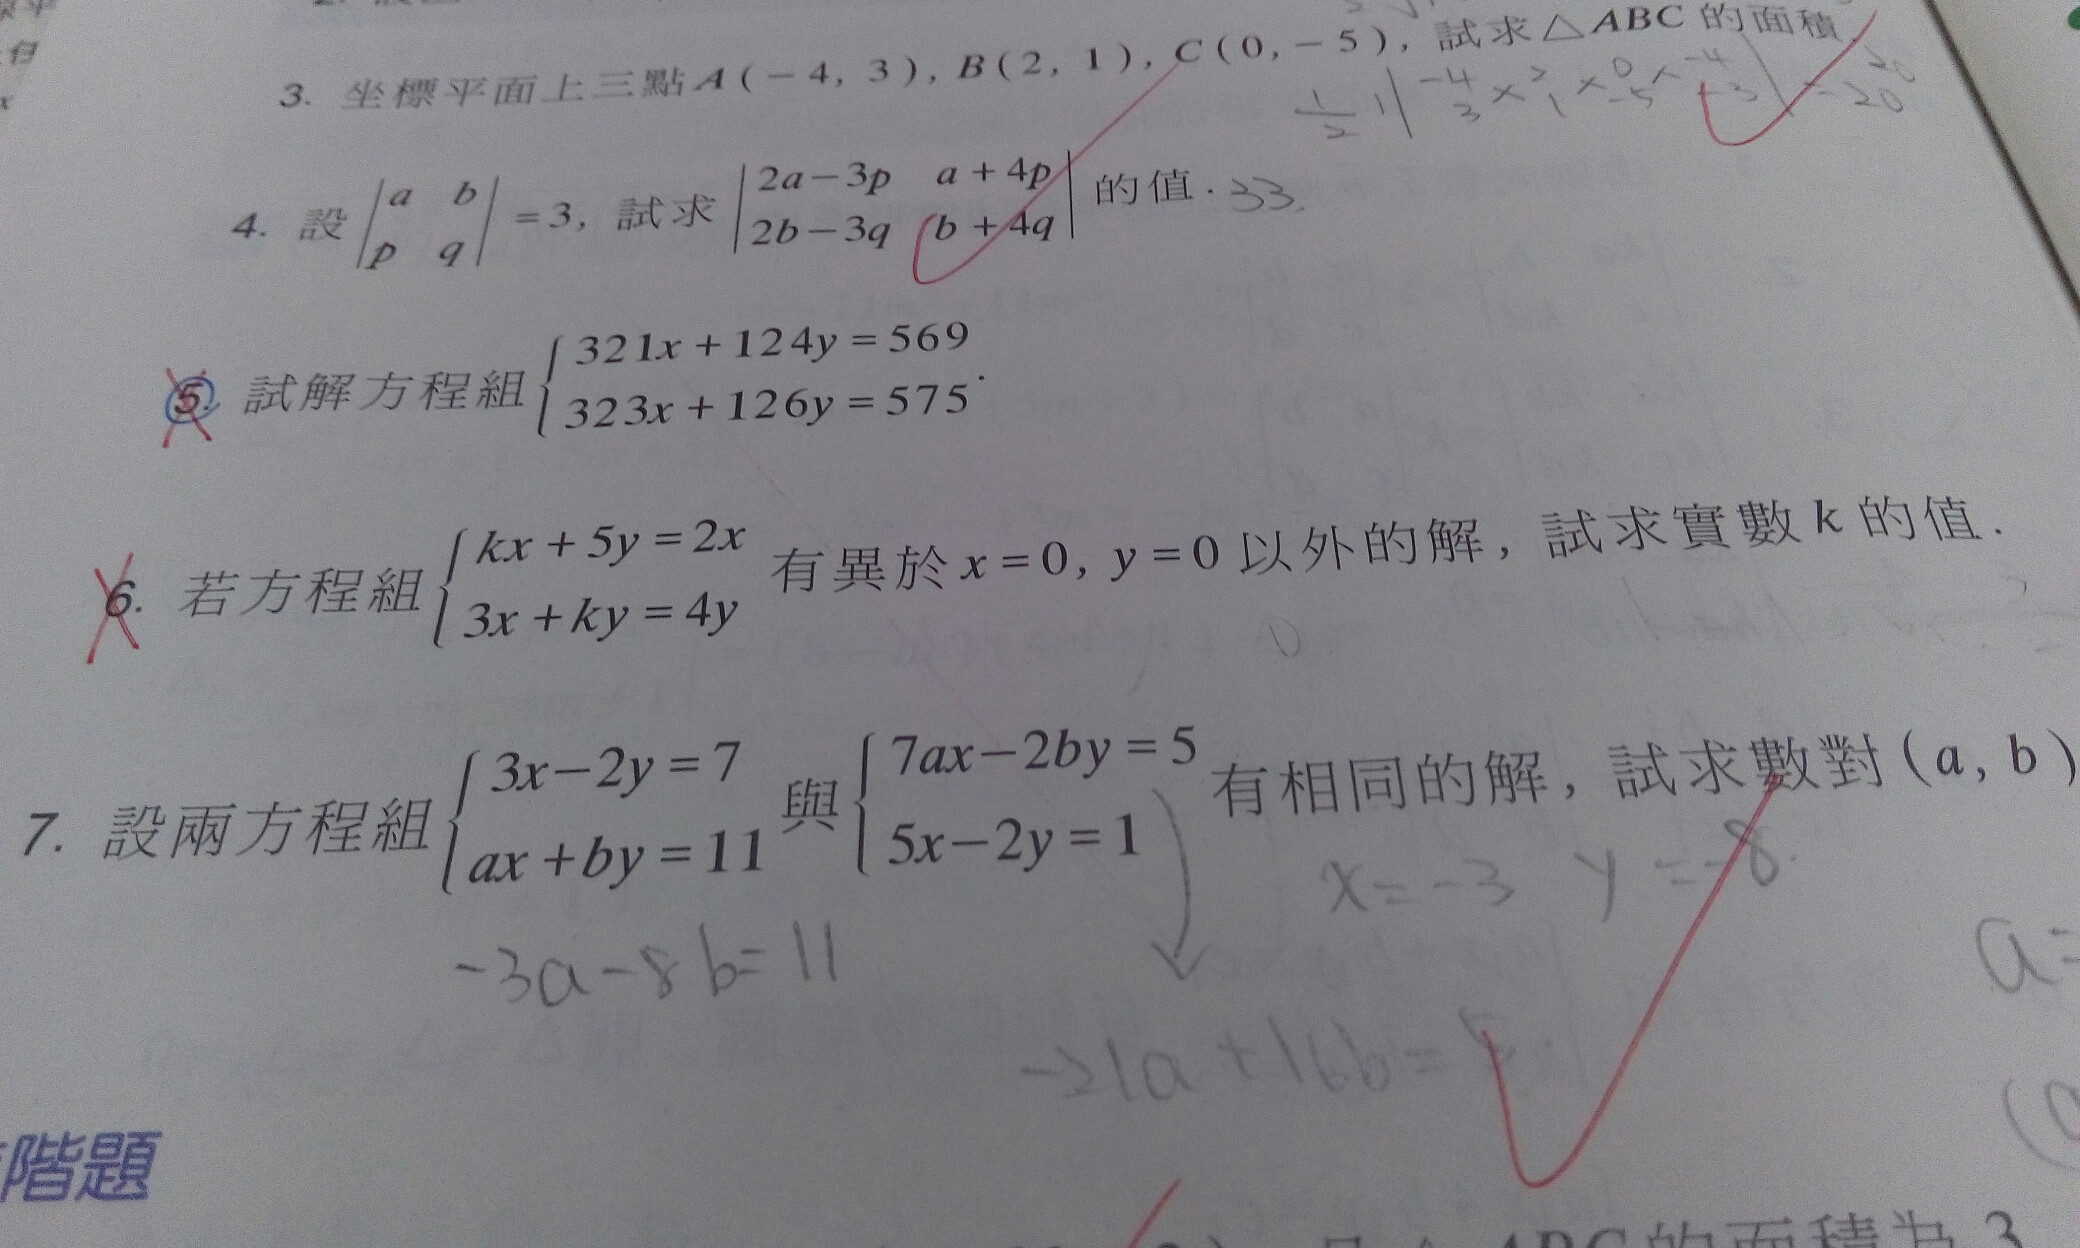 3. 坐標平面上三點A(-4, 3), B(2, 1), C(0, -5), 試求△ABC的面積.
1/2 | -4 3 × 2 1 × 0 -5 × -4 3 | = 20
4. 設 |a b; p q| = 3, 試求 |2a-3p a+4p; 2b-3q b+4q| 的值. 33.
5. 試解方程組 { 321x + 124y = 569
323x + 126y = 575 .
6. 若方程組 { kx + 5y = 2x
3x + ky = 4y 有異於 x = 0, y = 0 以外的解, 試求實數 k 的值.
7. 設兩方程組 { 3x-2y = 7
ax + by = 11 與 { 7ax-2by = 5
5x-2y = 1 有相同的解, 試求數對 (a, b)
x = -3 y = -8.
-3a-8b=11
a=
-21a+16b=5.
階題
ABC的面積為 3